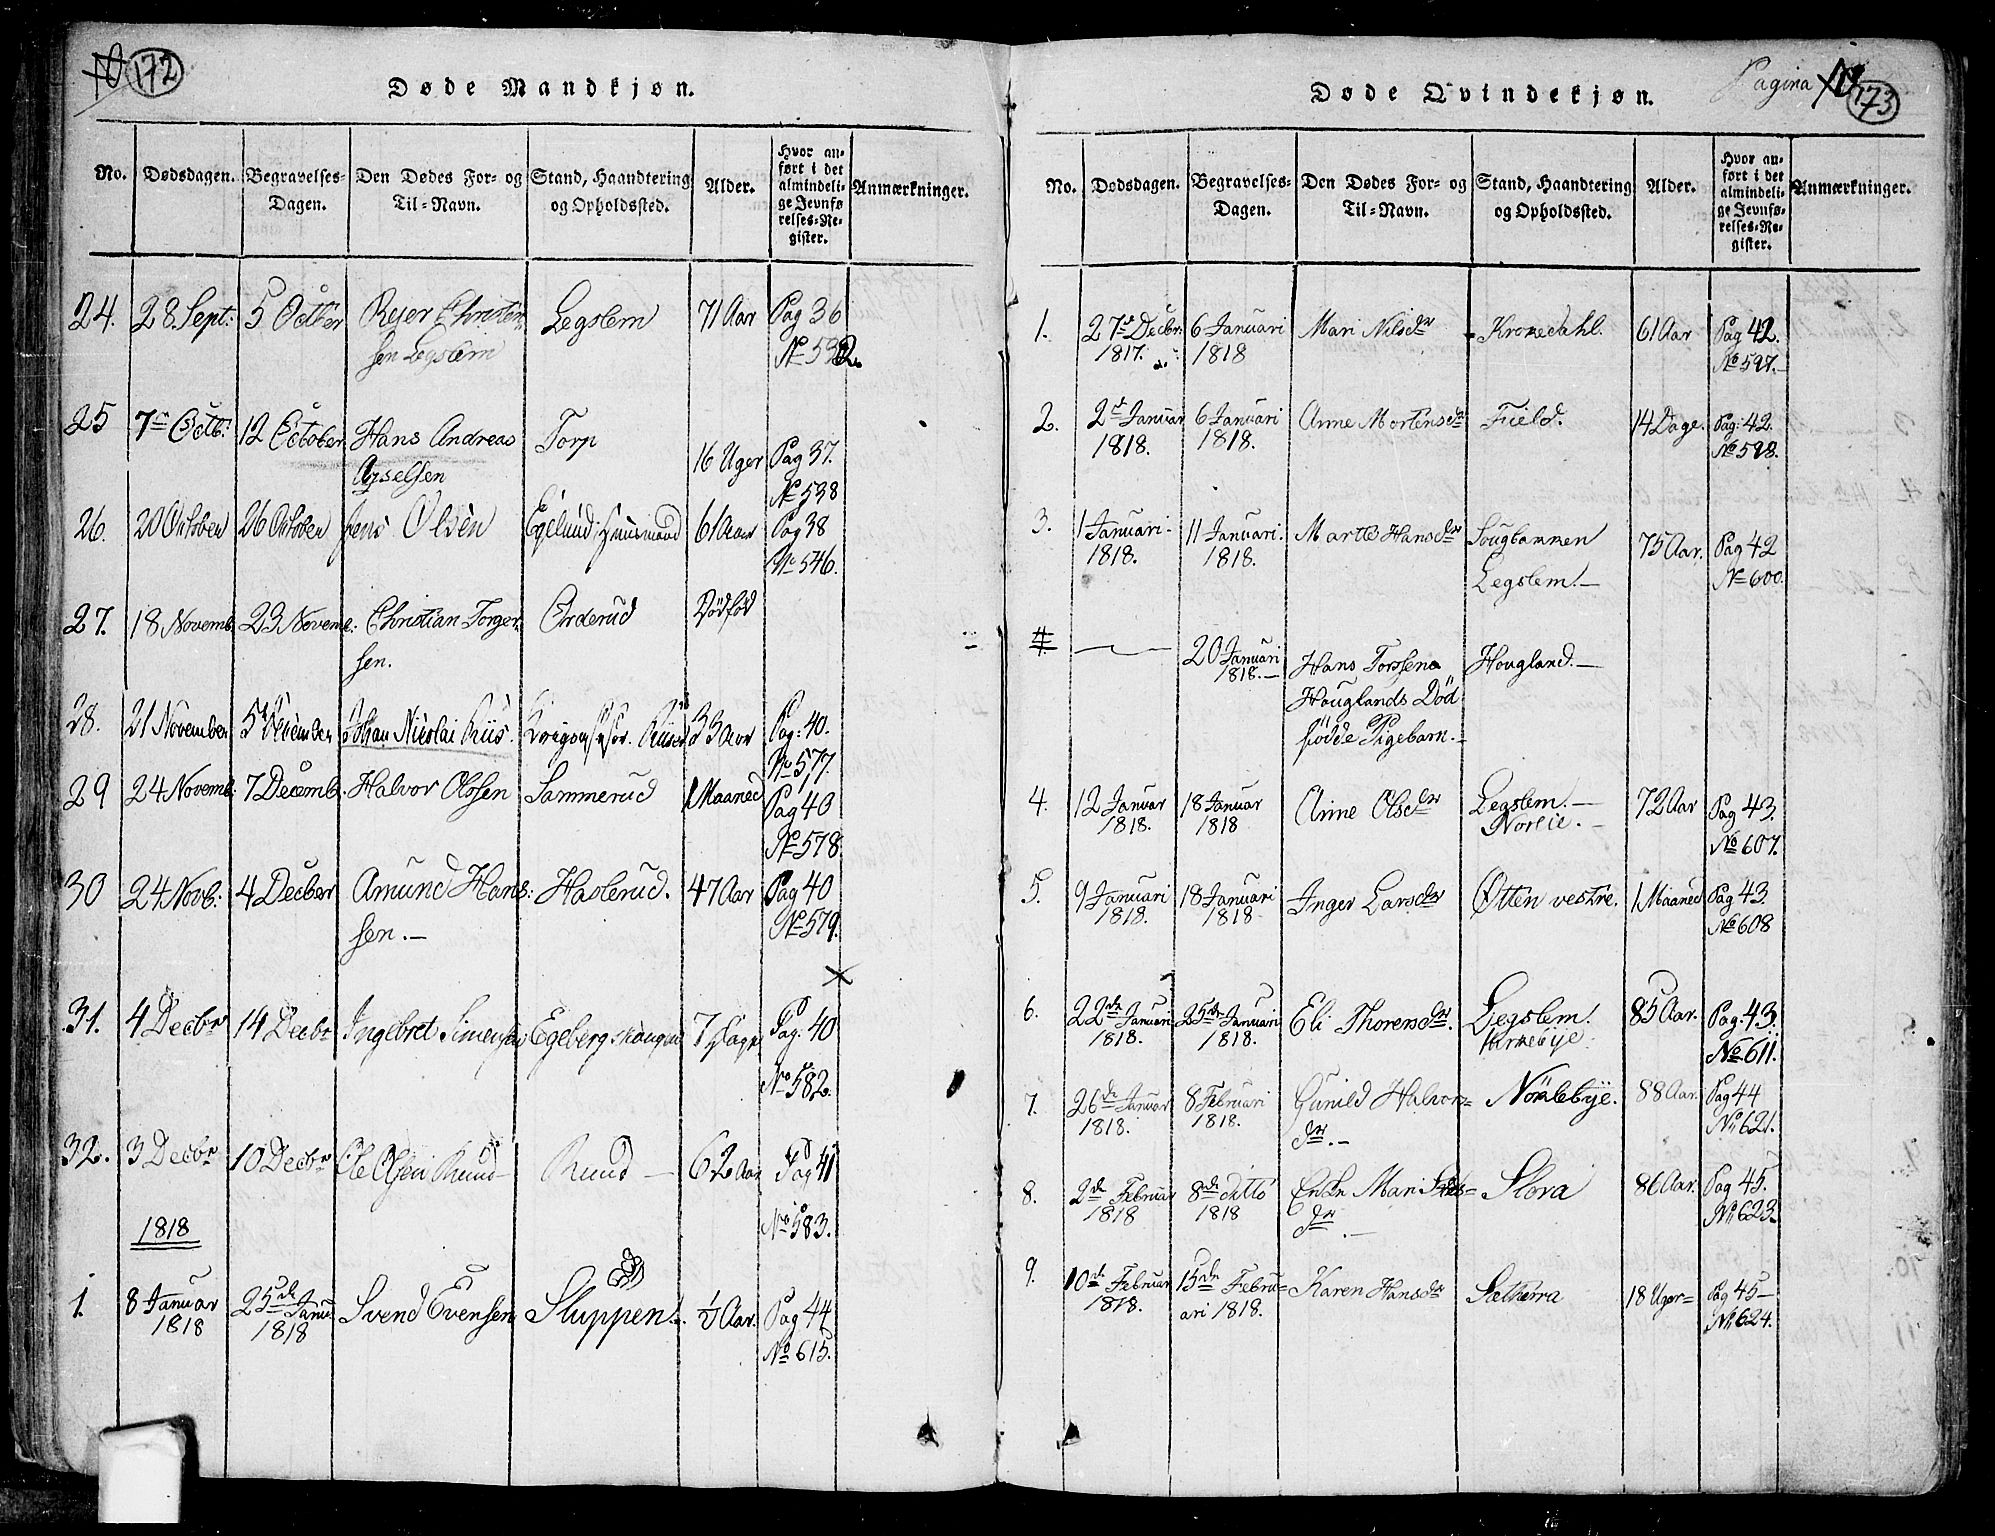 172
Døde Mandkjøn.
No. Dødsdagen. Begravelses-Dagen. Den Dødes For- og Til-Navn. Stand, Haandtering og Opholdssted. Alder. Hvor anført i det almindelige Jevnførelses-Register. Anmærkninger.
24. 28. Sept: 5 Octber Rejer Christen Legslem 71 Aar Pag 36
sen Legslem No 532.
25 7de Octb: 12 October Hans Andreas Torp 16 Uger Pag 37.
Axselsen No 538
26. 20 October 26 October Jens Olsen Egelund: Huusmand 61 Aar Pag 38
No 546.
27. 18 Novemb 23 Novemb: Christian Torger Orderud Dödfød
sen.
28. 21 November 5 December Johan Nicolai Riis 33 Aar Pag: 40.
No 577.
29 24 Novemb: 7 Decemb. Halvor Olssen Sammerud 1 Maaned Pag 40
No 578
30 24 Novb: 4 Decber Amund Hans: Haslerud. 47 Aar Pag 40
sen. No 579.
31. 4 Decbr 14 Decbr Ingebret Simensen Egeberg 7 Dage Pag: 40
No 582.
32. 3 Decbr 10 Decbr Ole Olsen Ruud Ruud 62 Aar Pag 41
No 583.
1818
1. 8 Januar 25de Janu Svend Evensen Sluppen Aar. Pag 44
1818 1818 No 615.
Pagina 173
Døde Qvindekjøn.
No. Dødsdagen. Begravelses-Dagen. Den Dødes For- og Til-Navn. Stand, Haandtering og Opholdssted. Alder. Hvor anført i det almindelige Jevnførelses-Register. Anmærkninger.
1. 27de Decbr. 6 Januari Mari Nilsdr Krokedahl. 61 Aar Pag 42.
1817. 1818 No 597.
2. 2d Januar 6 Januari Anne Mortensdr Field. 14 Dage. Pag: 42.
1818. 1818. No 598.
3. 1 Januari. 11 Januari. Marte Hansdr Sougbakken 75 Aar. Pag 42
1818. 1818. Legslem. No 600.
4. 20 Januari Hans Torssens Hougland.
1818. Houglands Död
födde Pigebarn.
4. 12 Januar 18 Januar Anne Olsdr Legslem. 72 Aar Pag 43.
1818. 1818 Norlie. No 607.
5. 9 Januari 18 Januari Inger Larsdr Otten vestre. 1 Maaned Pag 43.
1818. 1818 No 608
6. 22de Januari 25de Januari Eli Thorensdr. Legslem. 85 Aar. Pag. 43.
1818. 1818. Kirkebye. No 611.
7. 26de Januar 8 Februari Gunild Halvors= Nöklebye. 88 Aar. Pag 44
1818. 1818. dr. No 621.
8. 2de Februar 8de Ditto Enke Mari Slora 86 Aar. Pag 45.
1818 1818 dr No 623.
9. 10de Februar 15de Febru= Karen Hansdr Sætherra 18 Uger= Pag 45
1818. ari 1818. No 624.